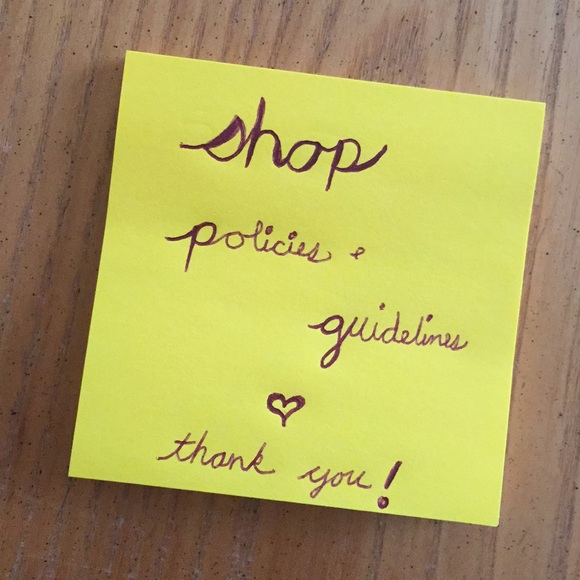 shop
policies &
guidelines
thank you!